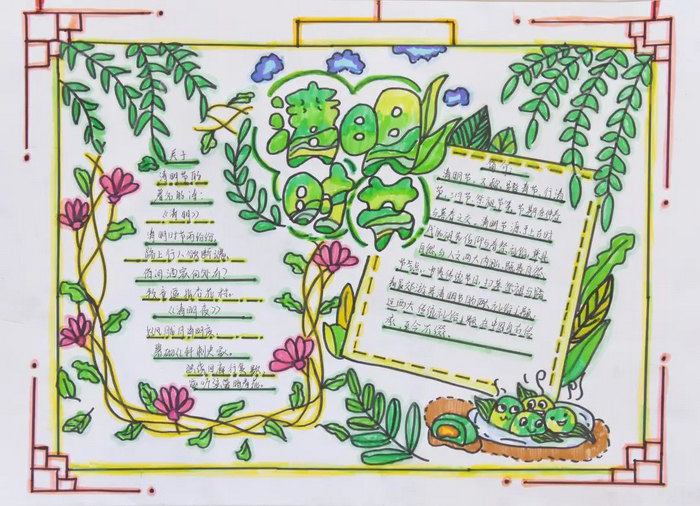 清明时节
关于
清明节的
著名的诗:
《清明》
清明时节雨纷纷,
路上行人欲断魂。
借问酒家何处有?
牧童遥指杏花村。
《清明夜》
好风胧月清明夜,
碧砌红轩刺史家。
独绕回廊行复歇,
遥听弦管暗看花。
清明节,又称踏青节、行清
节、三月节、祭祖节等,节期在仲春
与暮春之交。清明节源自上古时
自然与人文两大内涵,既是自然
节气点,也是传统节日,扫墓祭祖与踏
青郊游是清明节的两大礼俗主题,
这两大传统礼俗主题在中国自古传
承,至今不辍。